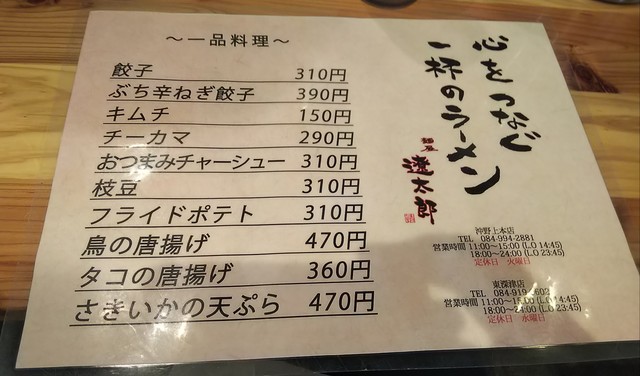 ～一品料理～
餃子 310円
ぶち辛ねぎ餃子 390円
キムチ 150円
チーカマ 290円
おつまみチャーシュー 310円
枝豆 310円
フライドポテト 310円
鳥の唐揚げ 470円
タコの唐揚げ 360円
さきいかの天ぷら 470円
心をつなぐ
一杯のラーメン
麺屋
遼太郎
沖野上本店
TEL 084-994-2881
営業時間 11:00～15:00 (L.O 14:45)
18:00～24:00 (L.O 23:45)
定休日 火曜日
東深津店
TEL
営業時間 11:00～15:00 (L.O 14:45)
18:00～24:00 (L.O 23:45)
定休日 水曜日